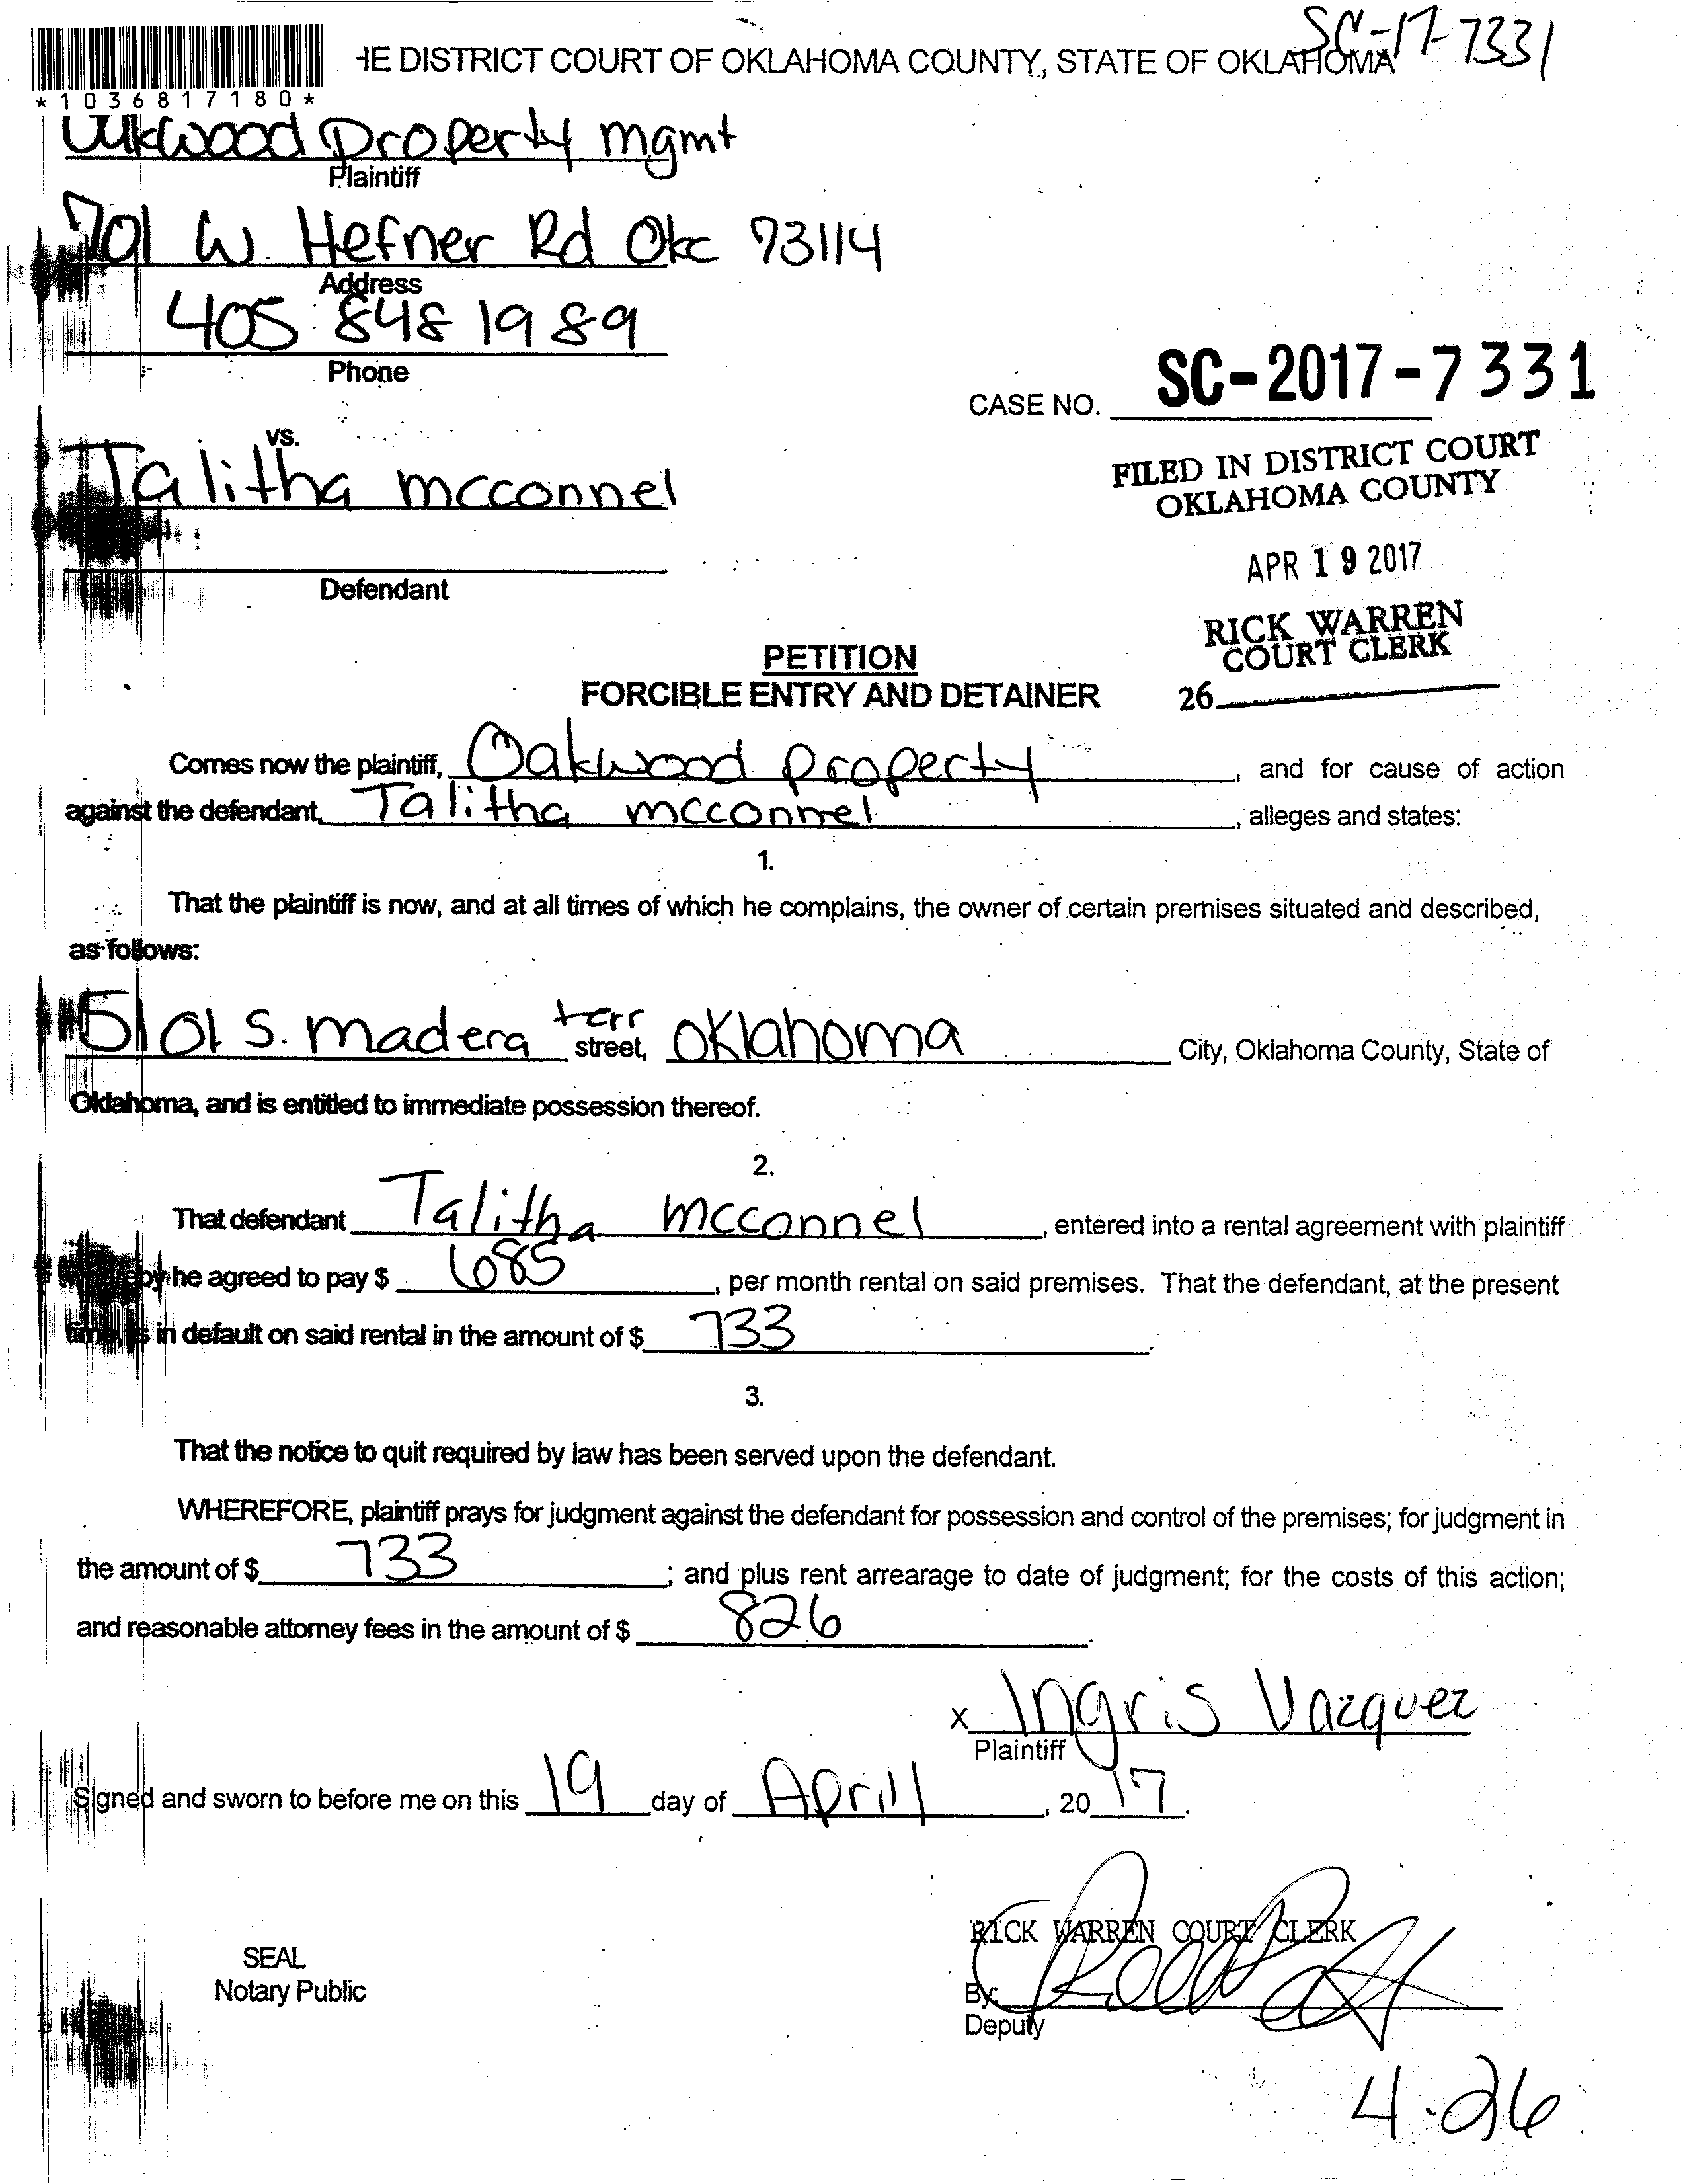 SC-17-7331
HE DISTRICT COURT OF OKLAHOMA COUNTY, STATE OF OKLAHOMA
*1036817180*
Oakwood Property mgmt
Plaintiff
701 W. Hefner Rd Okc 73114
Address
405 848 1989
Phone
CASE NO. SC-2017-7331
vs.
Talitha mcconnel
FILED IN DISTRICT COURT
OKLAHOMA COUNTY
APR 19 2017
Defendant
RICK WARREN
COURT CLERK
26
PETITION
FORCIBLE ENTRY AND DETAINER
Comes now the plaintiff, Oakwood property, and for cause of action
against the defendant, Talitha mcconnel, alleges and states:
1.
That the plaintiff is now, and at all times of which he complains, the owner of certain premises situated and described,
as follows:
5101 S. madera terr street, Oklahoma City, Oklahoma County, State of
Oklahoma, and is entitled to immediate possession thereof.
2.
That defendant Talitha mcconnel, entered into a rental agreement with plaintiff
whereby he agreed to pay $ 685, per month rental on said premises. That the defendant, at the present
time, is in default on said rental in the amount of $ 733.
3.
That the notice to quit required by law has been served upon the defendant.
WHEREFORE, plaintiff prays for judgment against the defendant for possession and control of the premises; for judgment in
the amount of $ 733; and plus rent arrearage to date of judgment; for the costs of this action;
and reasonable attorney fees in the amount of $ 826.
x Ingris Vazquez
Plaintiff
Signed and sworn to before me on this 19 day of Aprill, 2017.
RICK WARREN COURT CLERK
SEAL
Notary Public
By:
Deputy
4-26